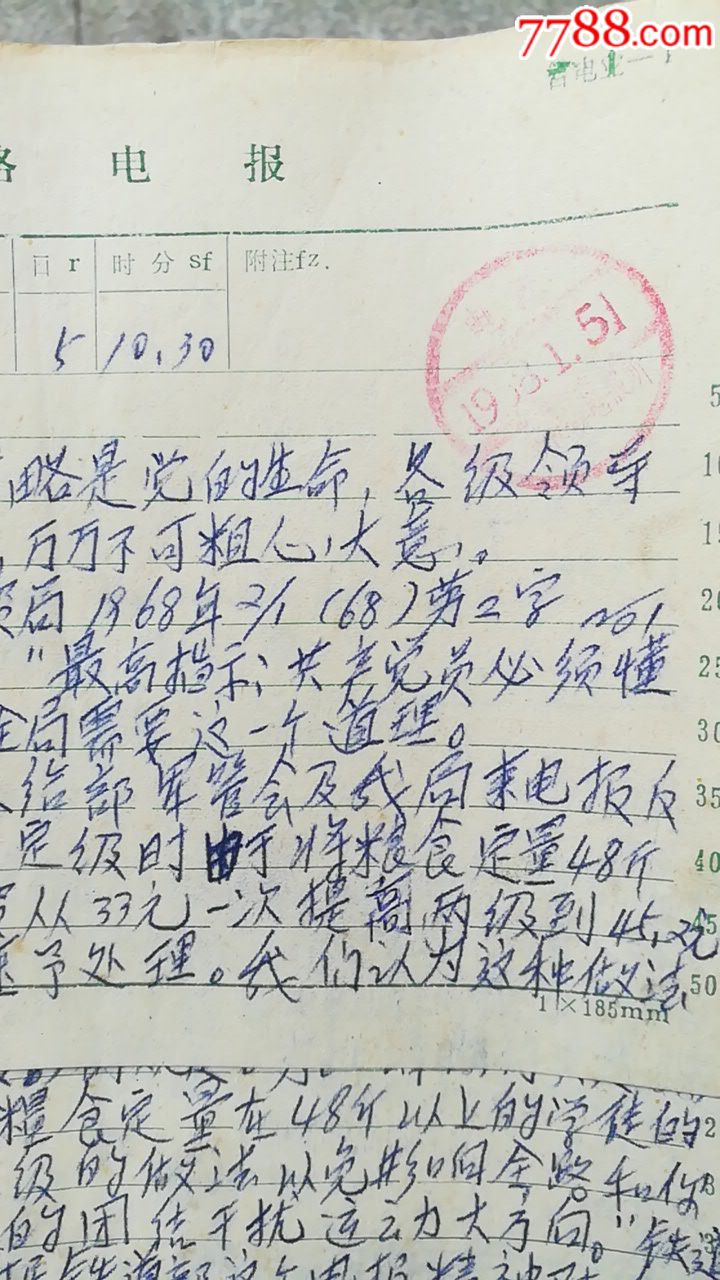 7788.com
省电业一1
路 电 报
日 r 时 分 sf 附注fz.
5 10.30
1968.1.5
5
策略是党的生命，各级领导 10
，万万不可粗心大意。 15
局1968年2/1（68）劳2字201 20
"最高指示：共产党员必须懂 25
全局需要这一个道理。 30
给部军管会及我局来电报反 35
定级时由于将粮食定量48斤 40
从33元一次提高两级到45.元 45
速予处理。我们认为这种做法 50
1×185mm
粮食定量在48斤以上的学徒的
级的做法以免影响全路和你
的团结干扰运动大方向。"铁道
铁道部这个电报精神